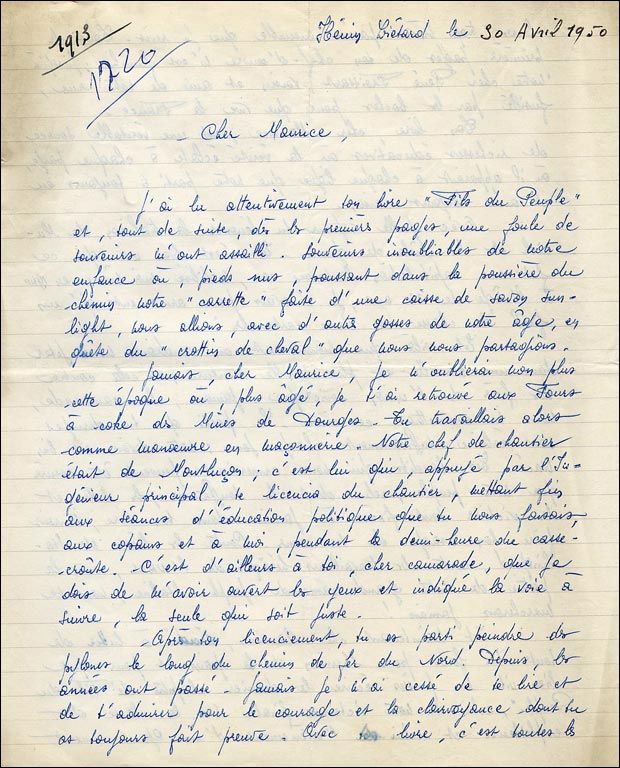 1913
1720
Hénin Liétard le 30 Avril 1950
Cher Maurice,
J'ai lu attentivement ton livre "Fils du Peuple"
et, tout de suite, dès les premières pages, une foule de
souvenirs m'ont assailli. Souvenirs inoubliables de notre
enfance où, pieds nus, poussant dans la poussière du
chemin notre "carrette" faite d'une caisse de savon Sun-
light, nous allions, avec d'autres gosses de notre âge, en
quête du "crottin de cheval" que nous nous partagions.
Jamais, cher Maurice, je n'oublierai non plus
cette époque où plus âgé, je t'ai retrouvé aux Fours
à coke des Mines de Dourges. Tu travaillais alors
comme manœuvre en maçonnerie. Notre chef de chantier
était de Montluçon ; c'est lui qui, appuyé par l'In-
génieur principal te licencia du chantier, mettant fin
aux séances d'éducation politique que tu nous faisais,
aux copains et à moi, pendant la demi-heure du casse-
croûte. C'est d'ailleurs à toi, cher camarade, que je
dois de m'avoir ouvert les yeux et indiqué la voie à
suivre, la seule qui soit juste.
Après ton licenciement, tu es parti peindre des
pylônes le long du chemin de fer du Nord. Depuis les
années ont passé. Jamais je n'ai cessé de te lire et
de t'admirer pour le courage et la clairvoyance dont tu
as toujours fait preuve. Avec livre, c'est toutes les